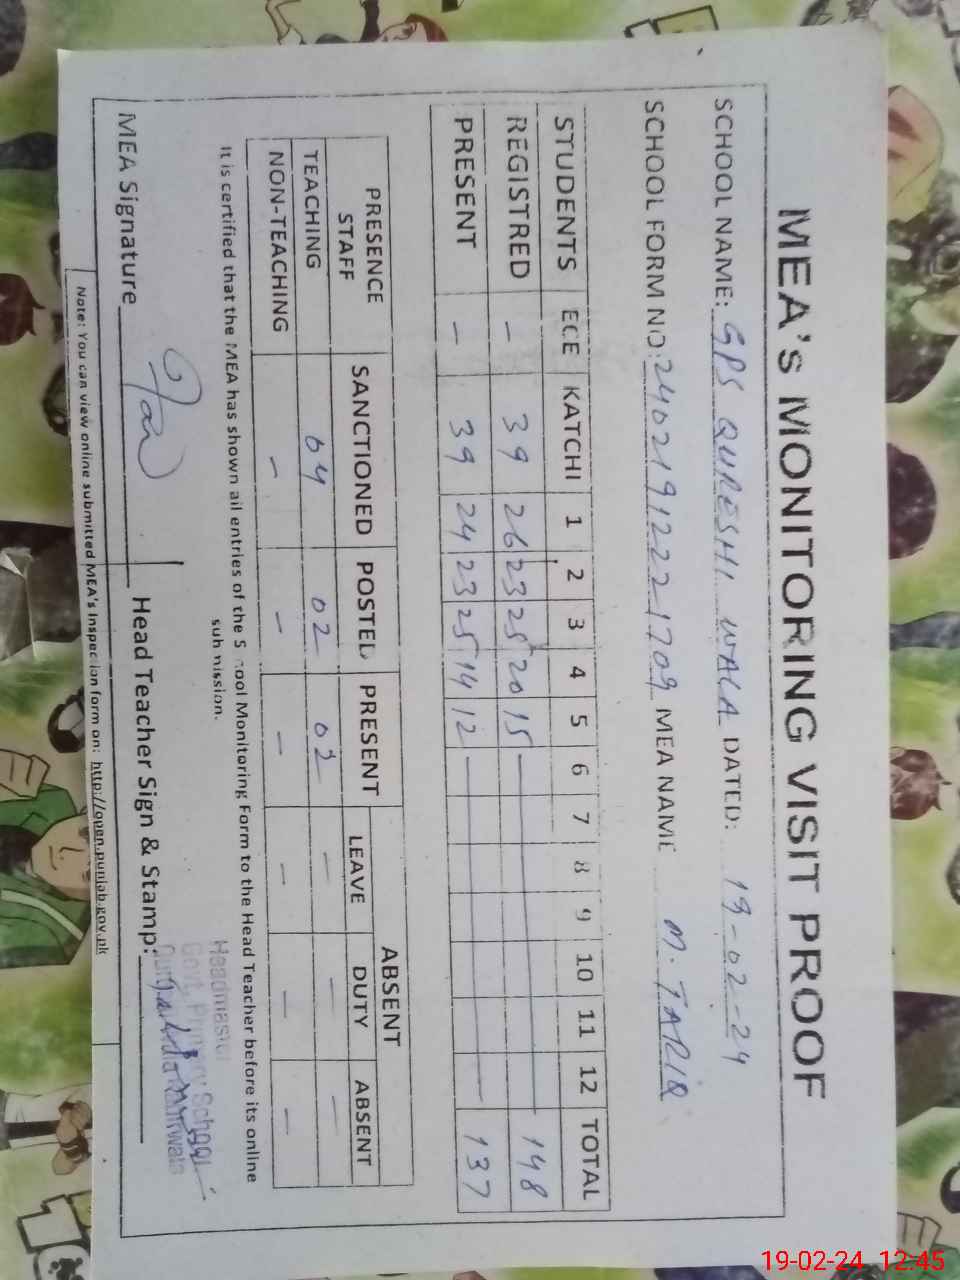 MEA's MONITORING VISIT PROOF
SCHOOL NAME: GPS QURESHI WALA DATED: 19-02-24
SCHOOL FORM NO: 24021912221709 MEA NAME M. TARIQ
STUDENTS ECE KATCHI 1 2 3 4 5 6 7 8 9 10 11 12 TOTAL
REGISTRED - 39 26 23 25 20 15 148
PRESENT - 39 24 23 25 14 12 137
PRESENCE STAFF SANCTIONED POSTED PRESENT ABSENT
LEAVE DUTY ABSENT
TEACHING 04 02 02 - - -
NON-TEACHING - - - - - -
It is certified that the MEA has shown all entries of the School Monitoring Form to the Head Teacher before its online
submission.
MEA Signature Head Teacher Sign & Stamp:
Headmaster
Govt. Primary School
Note: You can view online submitted MEA's Inspection form on: http://open.punjab.gov.pk
19-02-24 12:45